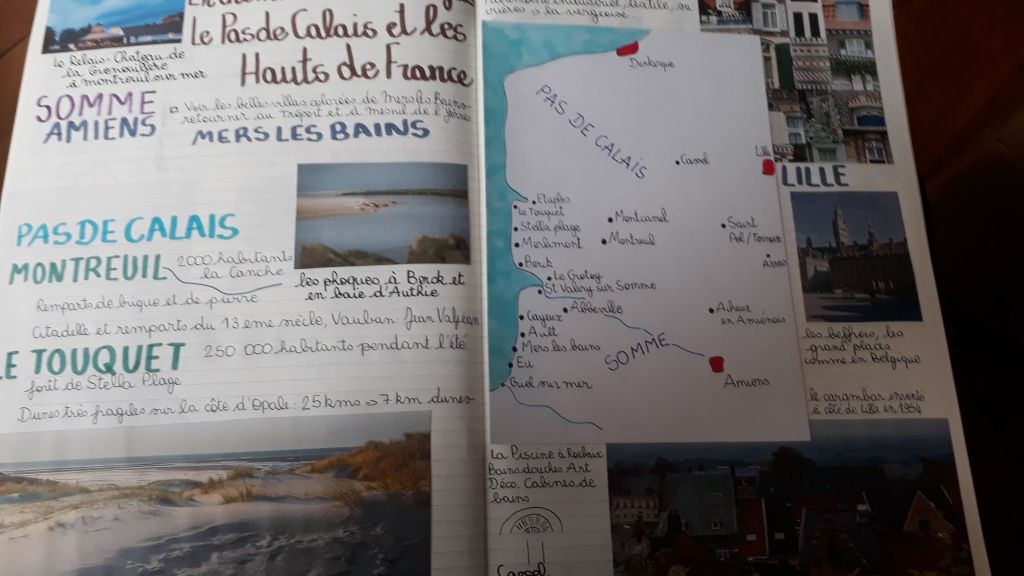 Le Pas de Calais et les
Hauts de France
Le Relais-Chateau de
la Grenouillère
à montreuil sur mer
SOMME
AMIENS
Voir les belles villas colorées de Mers les Bains
retourner au Tréport et à Mesnil de l'
MERS LES BAINS
PAS DE CALAIS
MONTREUIL
2000 habitants
la Canche
Remparts de brique et de pierre
les phoques à Berck et
en baie d'Authie
Citadelle et remparts du 13 eme siècle, Vauban Jean Valjean
LE TOUQUET 250 000 habitants pendant l'été
forêt de Stella Plage
Dunes très fragiles sur la côte d'Opale: 25 kms → 7 km dunes
industriel, textile,
la vergeoise...
Dunkerque
PAS DE CALAIS
Cassel
Lille
Etaples
le Touquet
Stella plage
Merlimont
Berck
Montcavrel
Montreuil
Saint
Pol/Ternoise
Arras
Le Crotoy
St Valery sur Somme
Cayeux
Abbeville
Ault
Mers les bains
Eu
Criel sur mer
SOMME
Acheux
en Amiénois
Amiens
LILLE
les beffrois, les
grand places
comme en Belgique
le carambar inventé
à côté de Lille en 1954
La Piscine à Roubaix
Bains douches Art
Déco. Cabines de
bains
Cassel